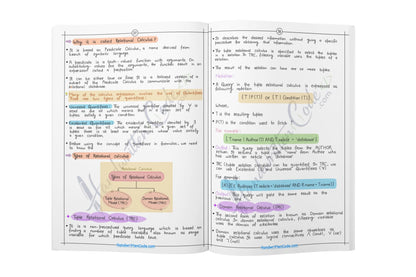 Why it is called Relational Calculus?
It is based on Predicate Calculus, a name derived from
branch of symbolic language.
A predicate is a truth-valued function with arguments. On
substituting values for the arguments, the function result is an
expression called a proposition.
It can be either true or false. It is a tailored version of a
subset of the Predicate Calculus to communicate with the
relational database.
Many of the calculus expressions involves the use of Quantifiers.
There are two types of quantifiers:
Universal Quantifiers: The universal quantifier denoted by
is read as for all which means that in a given set of
tuples exactly all tuples satisfy a given condition.
Existential Quantifiers: The existential quantifier denoted by
is read as for all which means that in a given set of
tuples there is at least one occurrences whose value satisfy
a given condition.
Before using the concept of quantifiers in formulas, we need to know
Types of Relational calculus
Relational Calculus
Types of Relational Calculus
Tuple Relational
Calculus (TRC)
Domain Relational
Calculus (DRC)
Tuple Relational Calculus (TRC)
It is a non-procedural query language which is based on
finding a number of tuple variables also known as range
variable for which predicate holds true.
HandwrittenCode.com
It describes the desired information without giving a specific
procedure for obtaining that information.
The tuple relational calculus is specified to select the tuples
in a relation. In TRC, filtering variable uses the tuples of a
relation.
The result of the relation can have one or more tuples.
Notation:
A Query in the tuple relational calculus is expressed as
following notation
{T | P(T)} or {T | Condition (T)}
Where,
T is the resulting tuples
P(T) is the condition used to fetch T.
For example:
{ T.name | Author(T) AND T.article = 'database' }
Output: This query selects the tuples from the AUTHOR
relation. It returns a tuple with 'name' from Author who
has written an article on 'database'.
TRC (tuple relation calculus) can be quantified. In TRC, we can
use Existential and Universal Quantifiers
For example:
Output: This query will yield the same result as the
previous one.
Domain Relational Calculus (DRC)
The second form of relation is known as Domain relational
calculus. In domain relational calculus, filtering variable uses
the domain of attributes.
Domain relational calculus uses the same operators as
tuple calculus. It uses logical connectives
HandwrittenCode.com